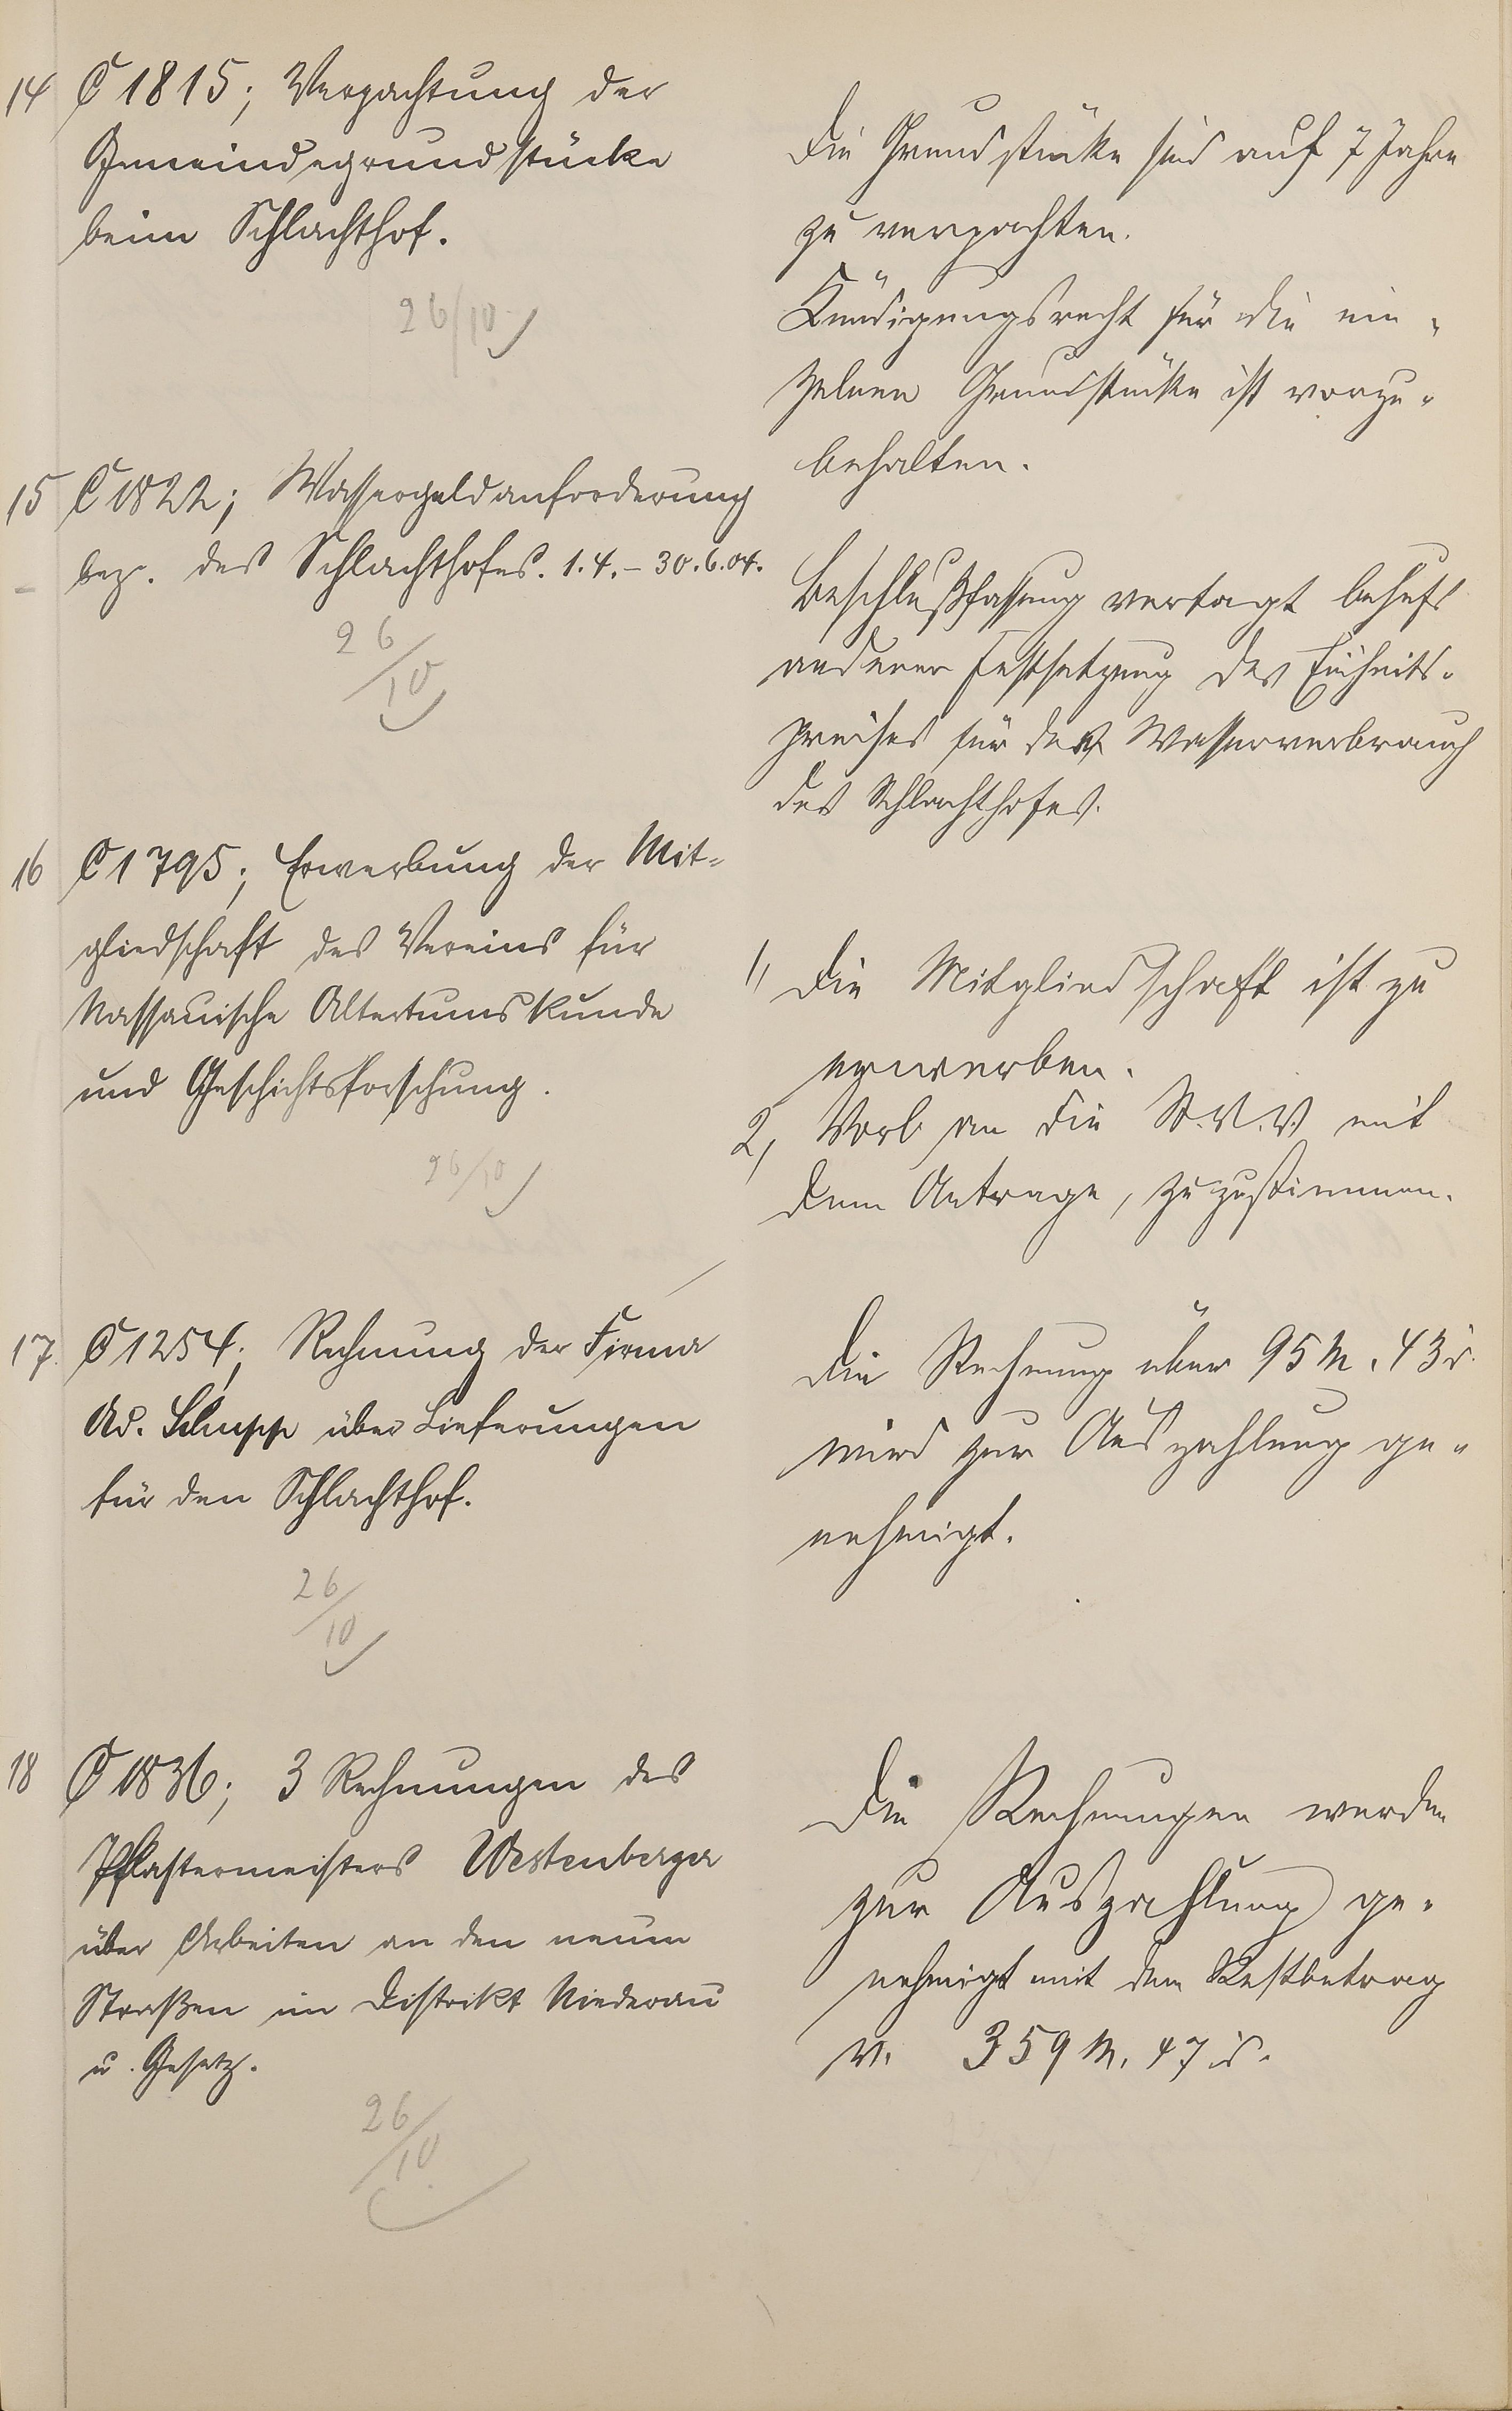 14 C 1815; Verpachtung der
Gemeindegrundstücke
beim Schlachthof.
26/10
Die Grundstücke sind auf 7 Jahre
zu verpachten.
Kündigungsrecht für die ein-
zelnen Grundstücke ist vorzu-
behalten.
15 C 1822; Wassergeldanforderung
bez. des Schlachthofes. 1.4.-30.6.04.
26/10
Beschlußfassung vertagt behufs
anderer Festsetzung des Einheits-
preises für den Wasserverbrauch
des Schlachthofes.
16 C 1795; Erwerbung der Mit=
gliedschaft des Vereins für
Nassauische Altertumskunde
und Geschichtsforschung.
26/10
1, Die Mitgliedschaft ist zu
erwerben.
2, Vorl. an die St.V.V. mit
dem Antrage, zuzustimmen.
17. C 1254; Rechnung der Firma
Ad. Schupp über Lieferungen
für den Schlachthof.
26/10
Die Rechnung über 95 M. 43 d.
wird zur Auszahlung ge-
nehmigt.
18 C 1836; 3 Rechnungen des
Pflastermeisters Westenberger
über Arbeiten an den neuen
Straßen im Distrikt Niederau
u. Gesetz.
26/10
Die Rechnungen werden
zur Auszahlung ge-
nehmigt mit dem Restbetrag
v. 359 M. 47 d.